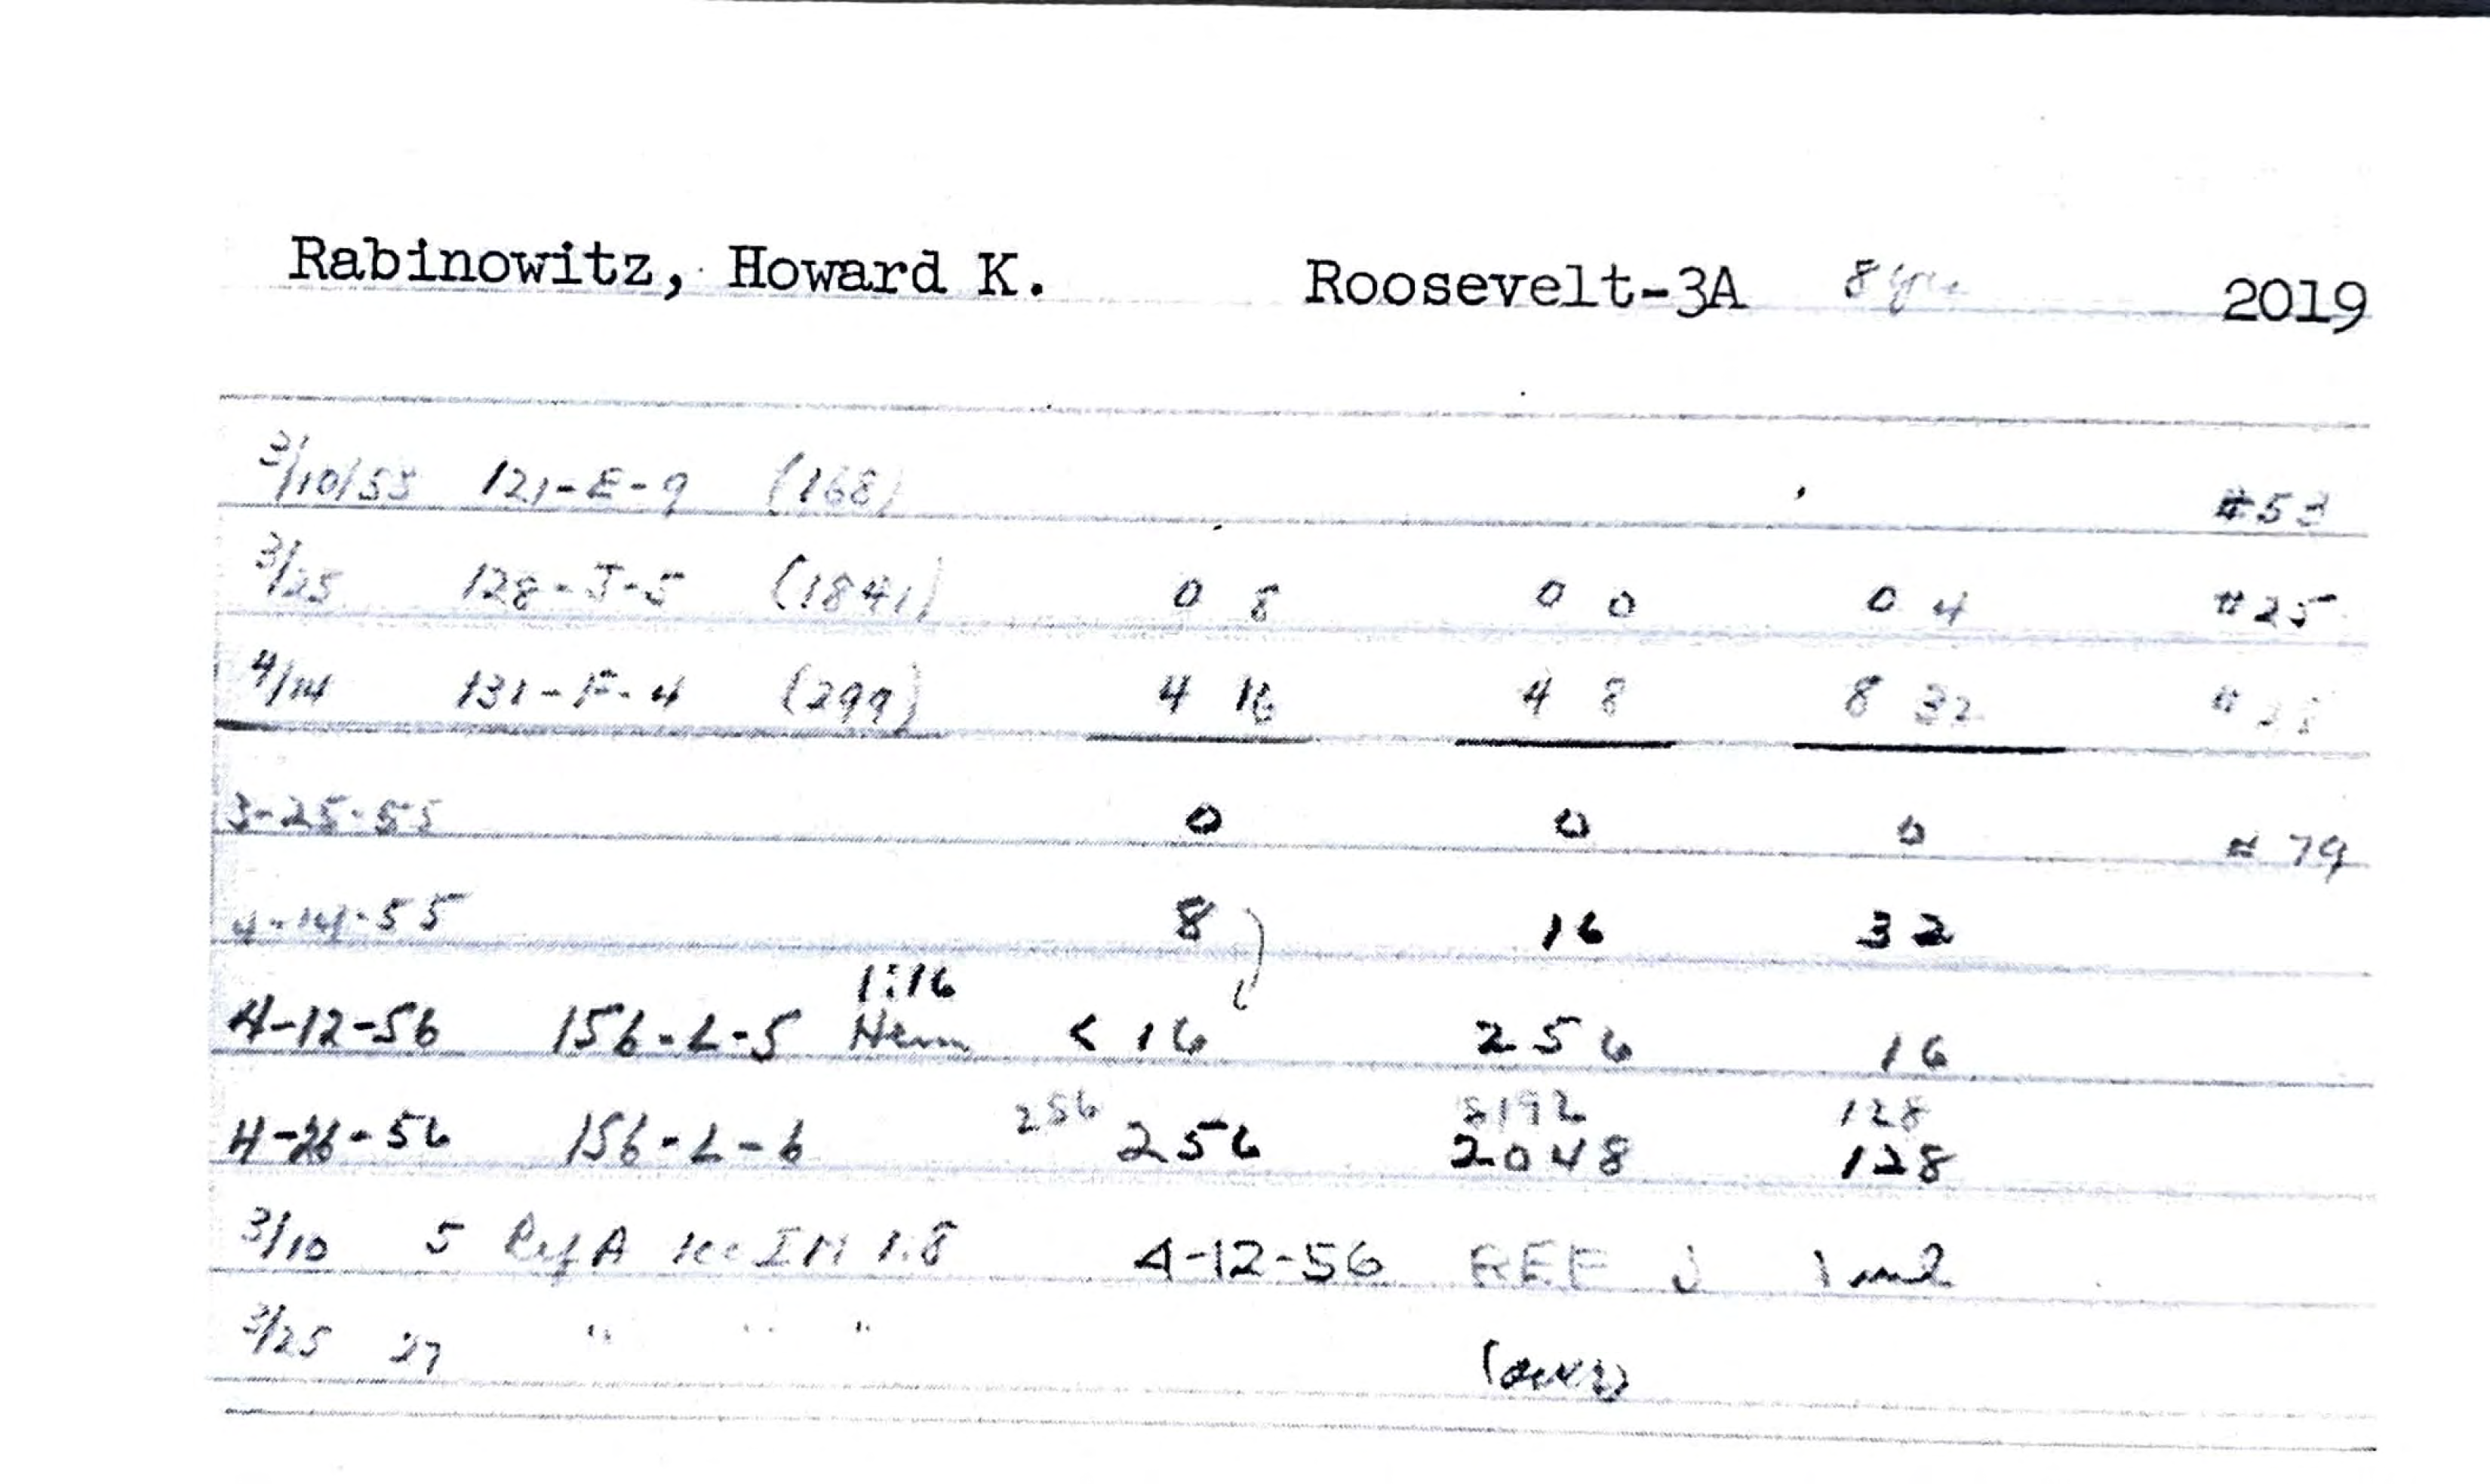 Rabinowitz, Howard K. Roosevelt-3A 2019
3/10/55 121-E-9 (168)
3/25 128-J-5 (1841) 0 8 0 0 0 4 #25
4/14 131-F-4 (299) 4 16 4 8 8 32
3-25-55 0 0 0 # 79
4-14-55 8 16 32
1:16
4-12-56 156-L-5 Hem < 16 256 16
256 8192 128
4-26-56 156-L-6 256 2048 128
3/10 5 Ref A 1cc IM 1:8 4-12-56 REF J 1 ml
3/25 27 " " "
(over)